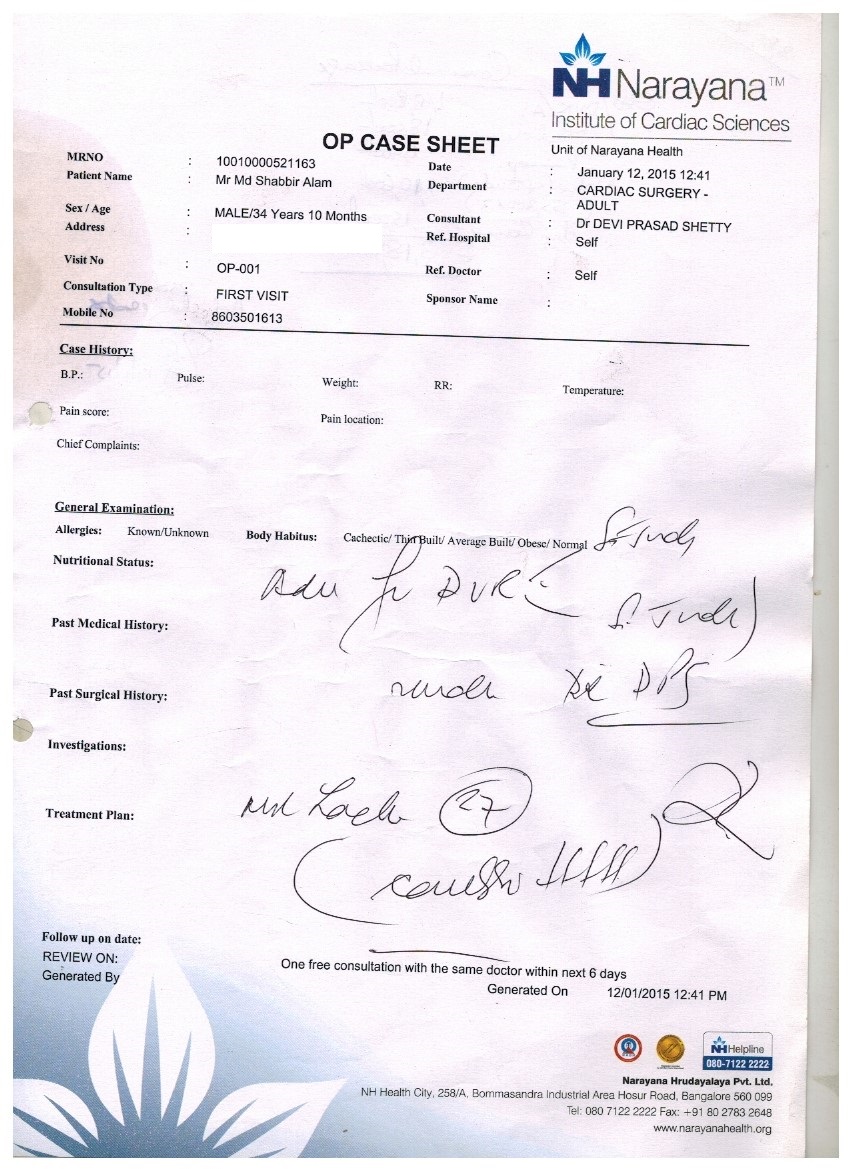 NH Narayana™
Institute of Cardiac Sciences
Unit of Narayana Health
OP CASE SHEET
MRNO : 10010000521163
Patient Name : Mr Md Shabbir Alam
Sex / Age : MALE/34 Years 10 Months
Address :
Visit No : OP-001
Consultation Type : FIRST VISIT
Mobile No : 8603501613
Date : January 12, 2015 12:41
Department : CARDIAC SURGERY -
ADULT
Consultant : Dr DEVI PRASAD SHETTY
Ref. Hospital : Self
Ref. Doctor : Self
Sponsor Name :
Case History:
B.P.: Pulse: Weight: RR: Temperature:
Pain score: Pain location:
Chief Complaints:
General Examination:
Allergies: Known/Unknown Body Habitus: Cachectic/ Thin Built/ Average Built/ Obese/ Normal St. Jude
Nutritional Status:
DVR
St. Jude
Past Medical History:
Past Surgical History:
DPS
Investigations:
Treatment Plan:
27
Follow up on date:
REVIEW ON:
Generated By
One free consultation with the same doctor within next 6 days
Generated On 12/01/2015 12:41 PM
NH Helpline
080-7122 2222
Narayana Hrudayalaya Pvt. Ltd.
NH Health City, 258/A, Bommasandra Industrial Area Hosur Road, Bangalore 560 099
Tel: 080 7122 2222 Fax: +91 80 2783 2648
www.narayanahealth.org